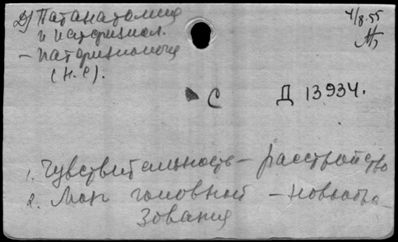 2) Патанатомия
и патфизиол.
- патфизиология
(н.с).
4/8.55
С
Д 13934.
1. Чувствительность - расстройство
2. Мозг головной - новообра
зования